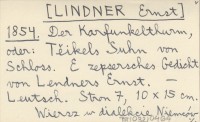 [LINDNER Ernst]
1854. Der Karfunkelthurm,
oder: Téikels Suhn von
Schloss. E zepsersches Gedicht
von Lendners Ernst. —
Leutsch. Stron 7, 10 x 15 cm.
Wiersz w dialekcie Niemców